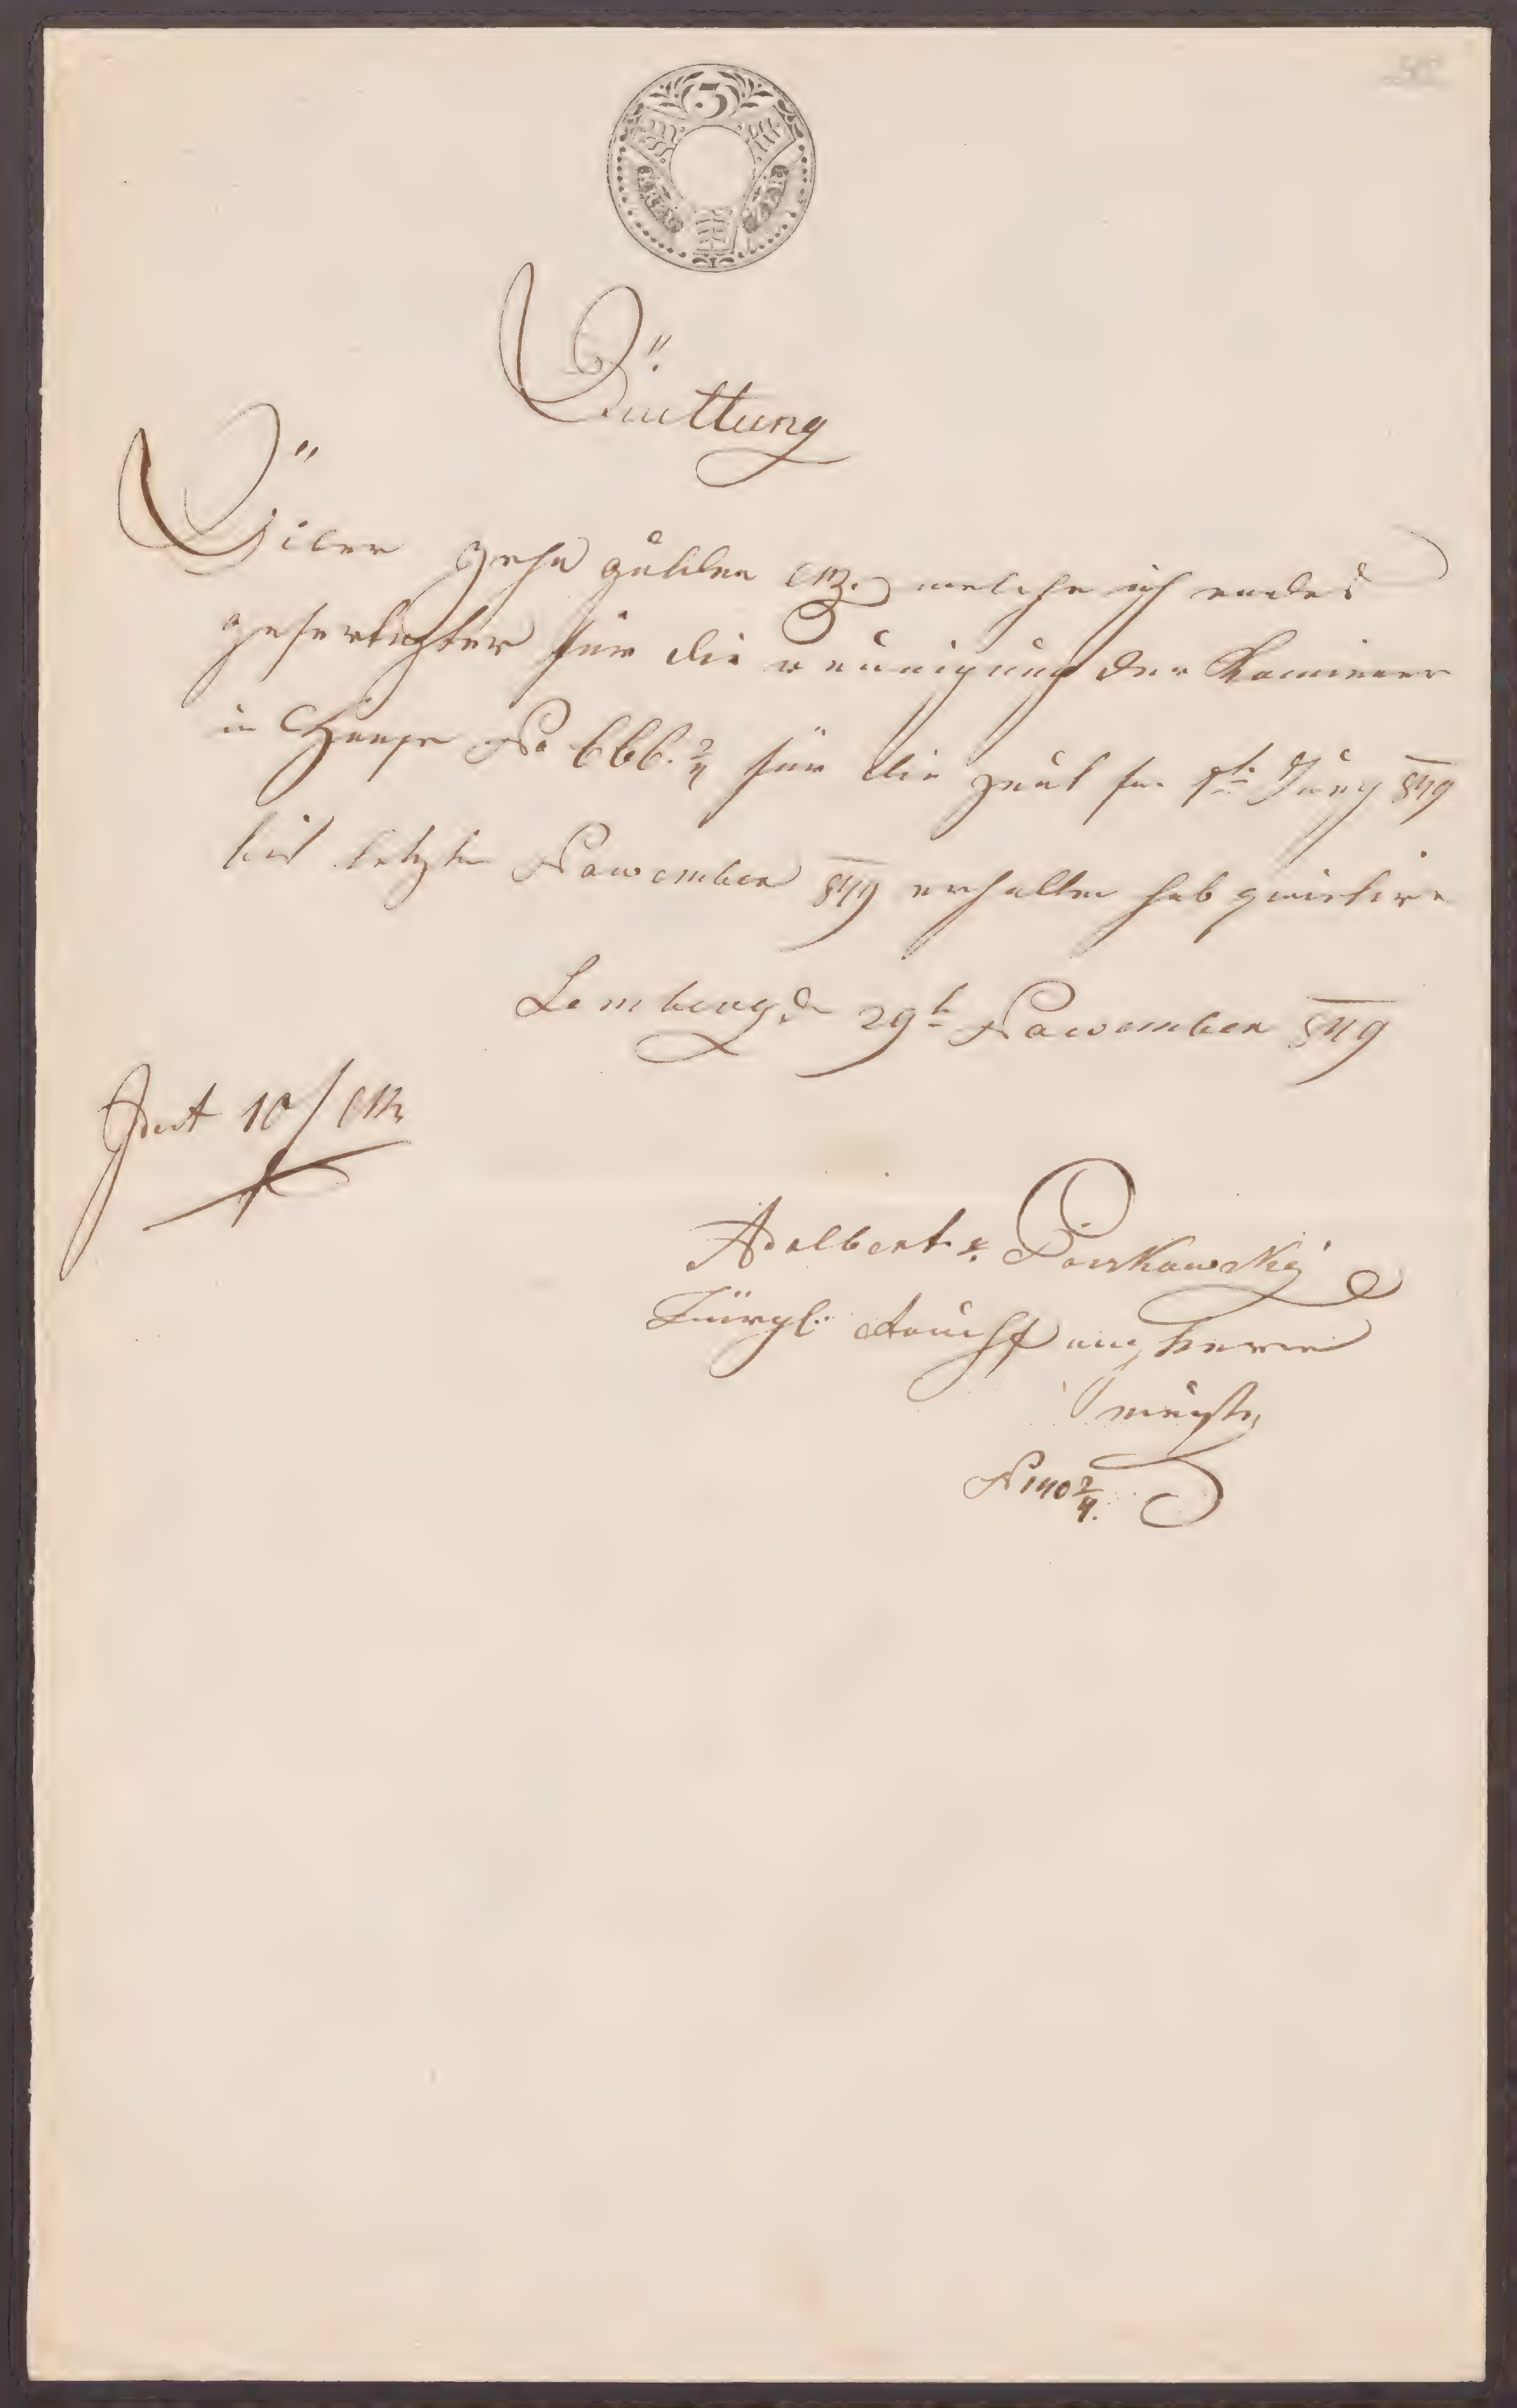 3
KREUZER
Quittung
Über zehn gulden CMz. welche ich endes
gefertigter für die reunigung der Kaminer
in Hause No 666. 2/4 für die zeit fn 1t Juny 849
bis letzten Nowember 849 erhalten hab quietire
Lemberg dn 29t Nowember 849
Fut 10/ CMz
Adalbert Piorkowski
Bürgl: Rauchfangkerer
meister
N 140 2/4.